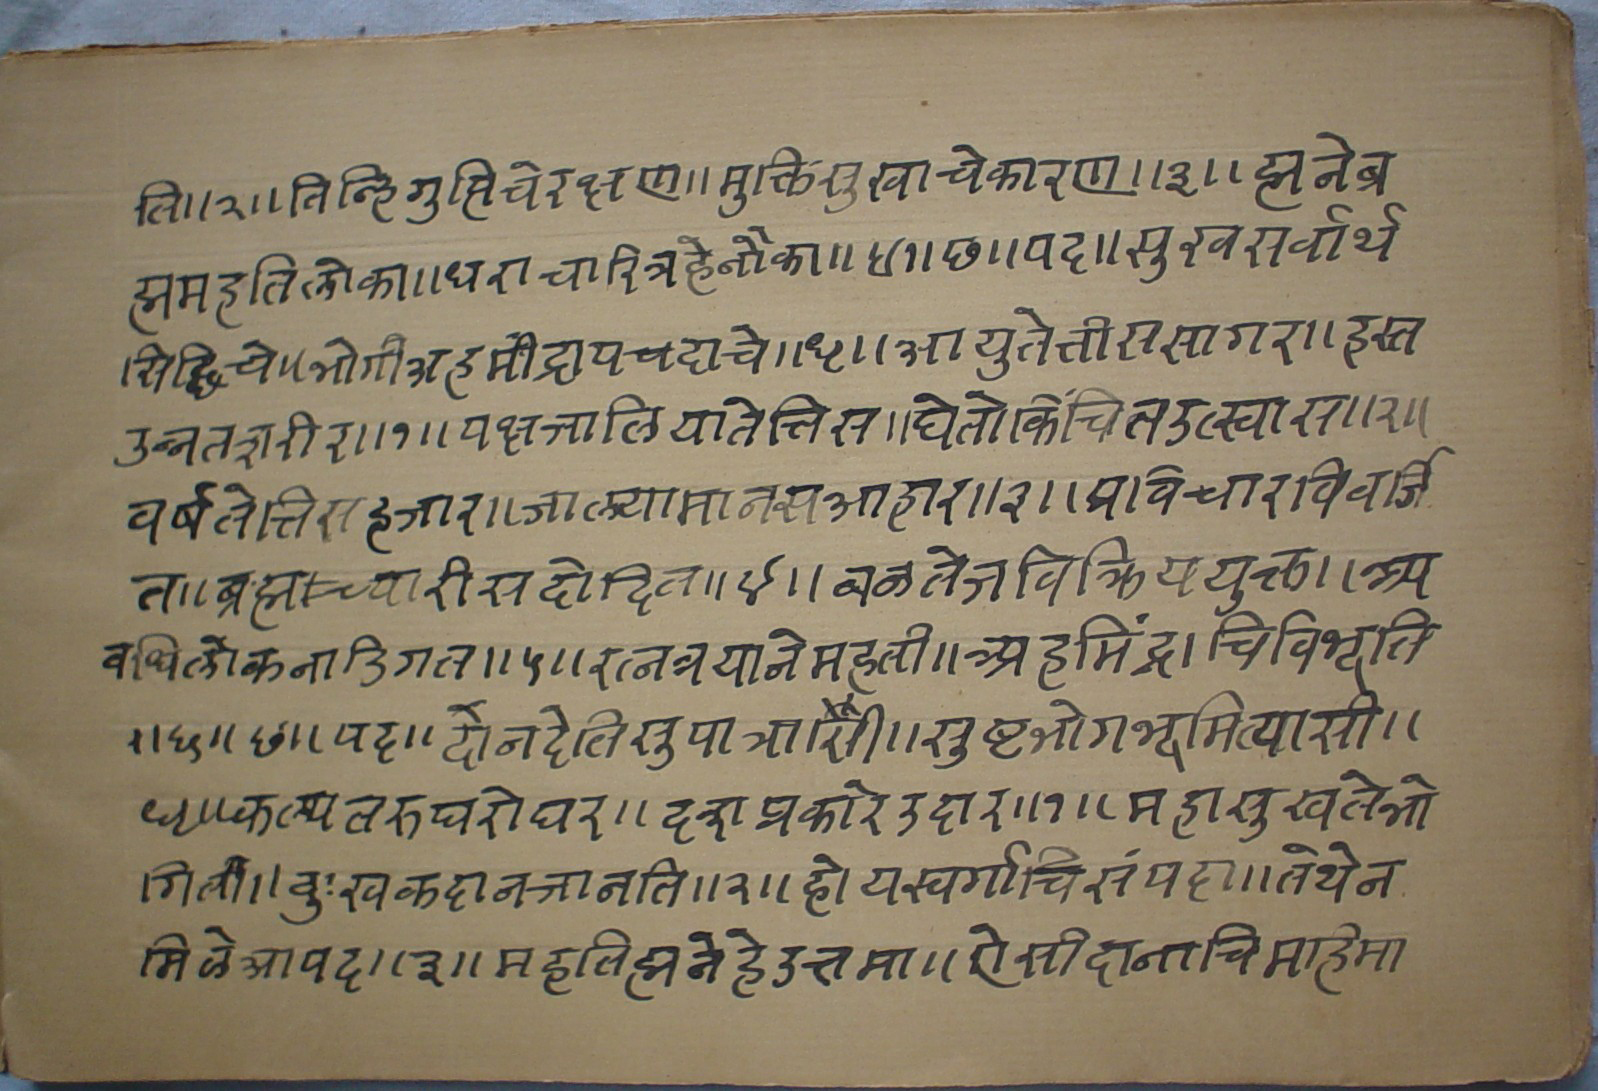 ति॥२॥तिन्हिगुप्तिचेरक्षण॥मुक्तिसुखाचेकारण॥३॥ह्मनेब्र
ह्ममहतिलोका॥धराचारित्रहेनौका॥४॥छ॥पद॥सुखसर्वार्थ
सिद्धिचे॥भोगीअहमींद्रापचदाचे॥धृ॥आयुतेत्तीससागर॥हस्त
उन्नतशरीर॥१॥पक्षजालियातेत्तिस॥घेतोकिंचितउत्स्वास॥२॥
वर्षतेत्तिसहजार॥जाल्यामानसआहार॥३॥प्रविचारविवर्जि
त॥ब्रह्मच्यारीसदोदित॥४॥बळतेजविक्रिययुक्त॥अप
वधिलोकनाडिगत॥५॥रत्नत्रयानेमहती॥अहमिंद्राचिविभूति
॥६॥छ॥पद॥दाँनदेतिसुपात्रासी॥सुष्टभोगभूमित्यासी॥
धृ॥कल्पतरुघरोघर॥दशप्रकारेउदार॥१॥महासुखतेभो
गिती॥दुःखकदानजानति॥२॥होयस्वर्गाचिसंपदा॥तेथेन
मिळेआपदा॥३॥महतिह्मनेहेउत्तमा॥ऐसीदानाचिमहिमा